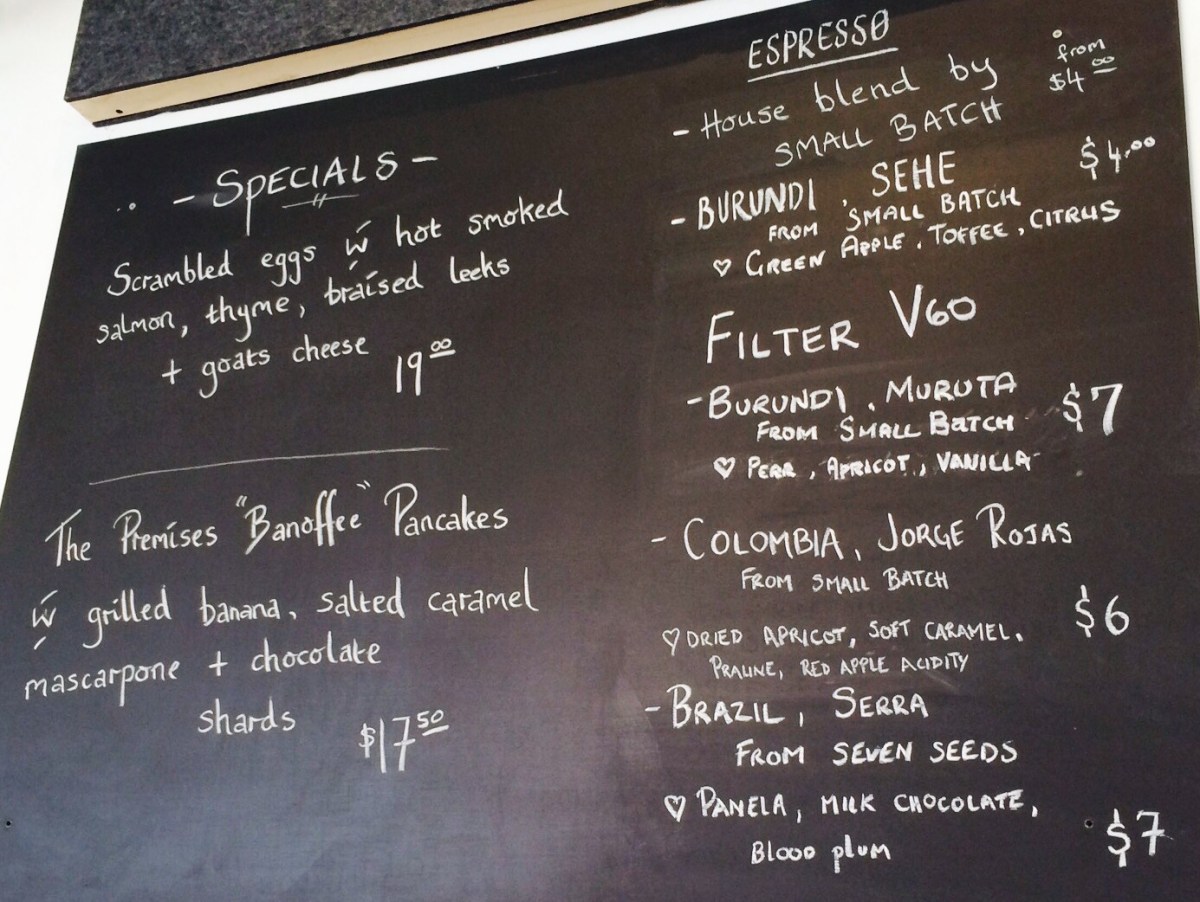 - SPECIALS -
Scrambled eggs ẃ hot smoked
salmon, thyme, braised leeks
+ goats cheese 19.00
The Premises "Banoffee" Pancakes
ẃ grilled banana, salted caramel
mascarpone + chocolate
shards $17.50
ESPRESSO
- House blend by from $4.00
SMALL BATCH
- BURUNDI, SEHE $4.00
FROM SMALL BATCH
♡ GREEN APPLE, TOFFEE, CITRUS
FILTER V60
- BURUNDI, MURUTA $7
FROM SMALL BATCH
♡ PEAR, APRICOT, VANILLA
- COLOMBIA, JORGE ROJAS
FROM SMALL BATCH
$6
♡ DRIED APRICOT, SOFT CARAMEL,
PRALINE, RED APPLE ACIDITY
- BRAZIL, SERRA
FROM SEVEN SEEDS
♡ PANELA, MILK CHOCOLATE,
BLOOD plum $7